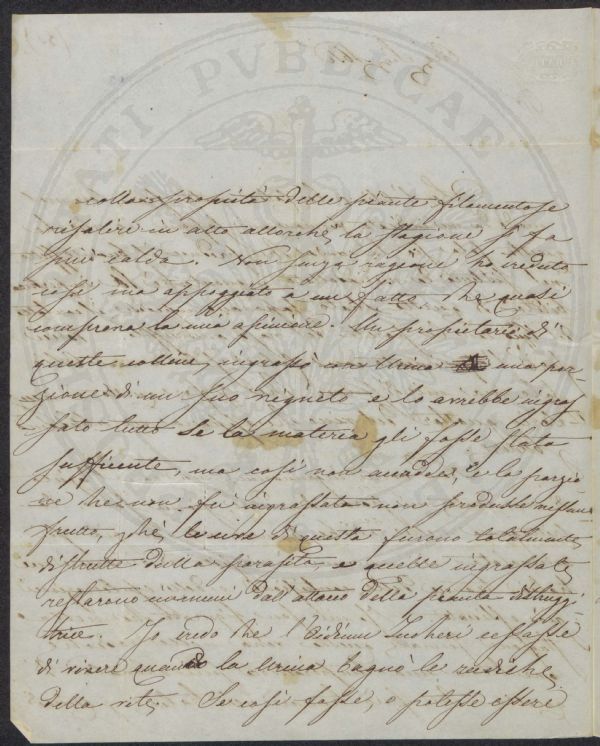 colla proprietà delle piante filamentose
risalire in alto allorchè la stagione si fa
più calda. Non senza ragione ho creduto
così ma appoggiato a un fatto che quasi
comprova la mia opinione. Un propietario di
queste colline, ingrassò con Urina una por-
zione di un suo vigneto e lo avrebbe ingras
sato tutto se la materia gli fosse stata
sufficente, ma così non accadde, e la porzio
ne che non fù ingrassata non produsse nissun
frutto, chè le uve di questa furono totalmente
distrutte dalla parasita, e quelle ingrassate
restarono immuni dall'attacco della pianta distruggi
trice. Io credo che l'Oidium Tucheri cessasse
di vivere quando la Urina bagnò le radiche
della vite. Se così fosse, o potesse essere
PUBLICAE